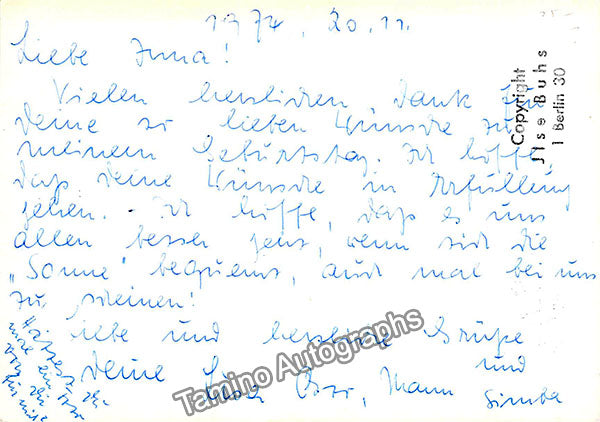 1974, 20.11.
Liebe Inna!
Vielen herzlichen Dank für
Deine so lieben Wünsche zu
meinem Geburtstag. Ich hoffe,
daß Deine Wünsche in Erfüllung
gehen. Ich hoffe, daß es uns
allen besser geht, wenn sich die
„Sonne" bequemt, auch mal bei uns
zu scheinen!
Liebe und herzliche Grüße
Deine Lisa Otto, Mann und
Simba
Copyright
Ilse Buhs
1 Berlin 30
Tamino Autographs